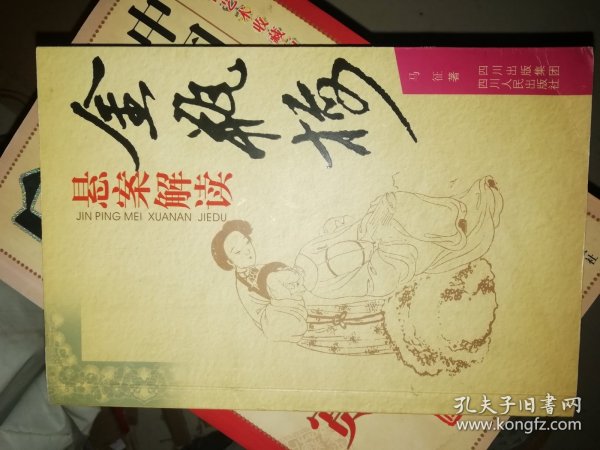 金瓶梅
悬案解读
JIN PING MEI XUANAN JIEDU
马征著
四川出版集团
四川人民出版社
中国
收藏
孔夫子旧书网
www.kongfz.com